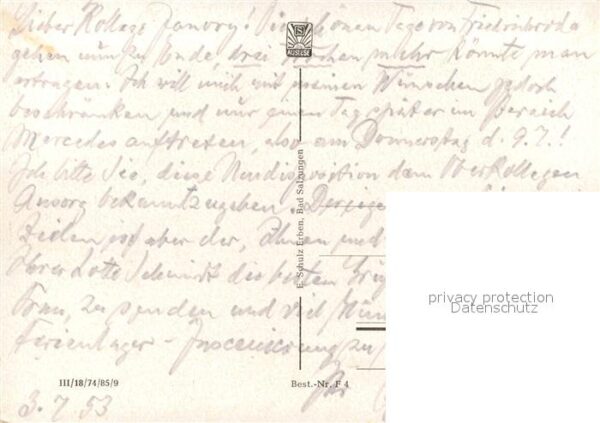 Lieber Kollege Janory! Die schönen Tage von Friedrichroda
gehen nun zu Ende drei Wochen mehr könnte man
ertragen. Ich will mich mit meinen Wünschen jedoch
beschränken und nur einen Tag später im Bereich
Mercedes auftreten, also am Donnerstag d. 9.7.!
Ich bitte Sie, diese Neudisposition dem Oberkollegen
Ansorg bekanntzugeben.
Zeilen ist aber der, Ihnen und
Lotte Schmidt die besten
Frau, zu senden und viel
Ferienlager - Inscenierung zu
AUSLESE
E. Schulz Erben, Bad Salzungen
privacy protection
Datenschutz
III/18/74/85/9
Best.-Nr. F 4
3.7.53